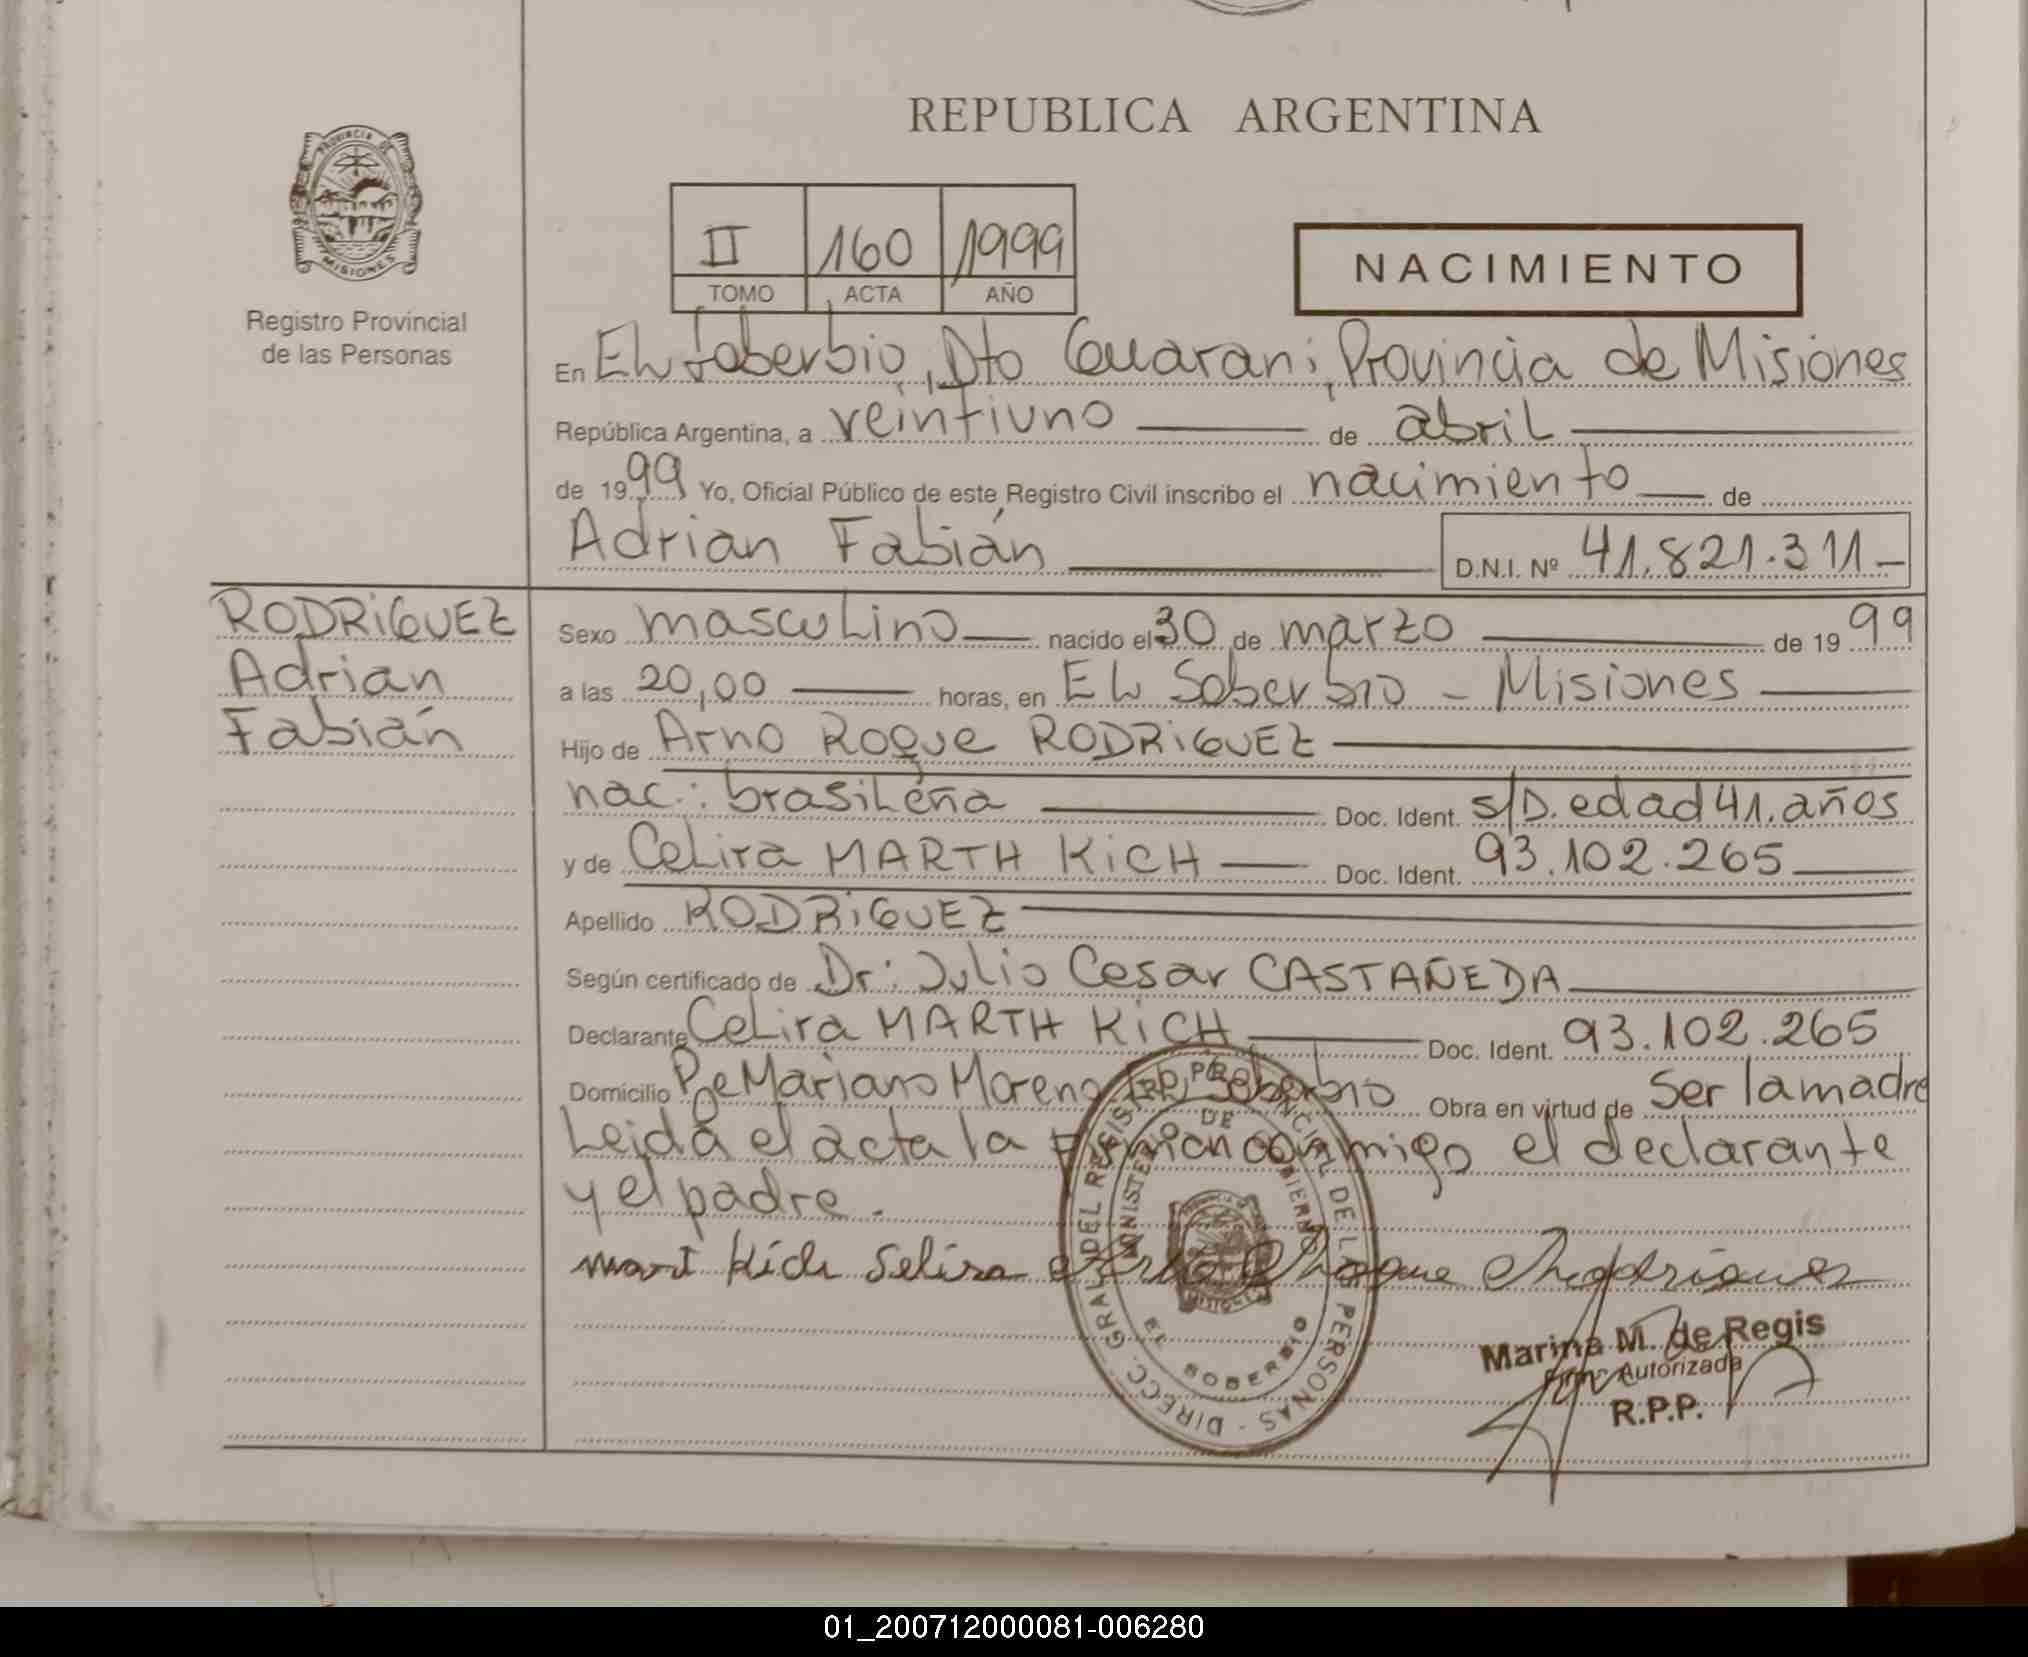 REPUBLICA ARGENTINA
PROVINCIA DE
MISIONES
Registro Provincial
de las Personas
II 160 1999
TOMO ACTA AÑO
NACIMIENTO
En El Soberbio, Dto Guarani, Provincia de Misiones
República Argentina, a veintiuno de abril
de 1999 Yo, Oficial Público de este Registro Civil inscribo el nacimiento de
Adrian Fabián
D.N.I. Nº 41.821.311-
RODRIGUEZ
Adrian
Fabián
Sexo masculino nacido el 30 de marzo de 1999
a las 20,00 horas, en El Soberbio - Misiones
Hijo de Arno Roque RODRIGUEZ
nac.: brasileña Doc. Ident. s/D. edad 41. años
y de Celira MARTH KiCH Doc. Ident. 93.102.265
Apellido RODRIGUEZ
Según certificado de Dr: Julio Cesar CASTAÑEDA
Declarante Celira MARTH KiCH Doc. Ident. 93.102.265
Domicilio Pje Mariano Moreno El Soberbio Obra en virtud de ser la madre
Leida el acta la firman conmigo el declarante
y el padre.
mart Kich Selira Arno Rhoque Rhodrigues
DIRECC. GRAL. DEL REGISTRO PROVINCIAL DE LAS PERSONAS -
MINISTERIO DE GOBIERNO
MISIONES
EL SOBERBIO
Marina M. de Regis
Firma Autorizada
R.P.P.
01_200712000081-006280